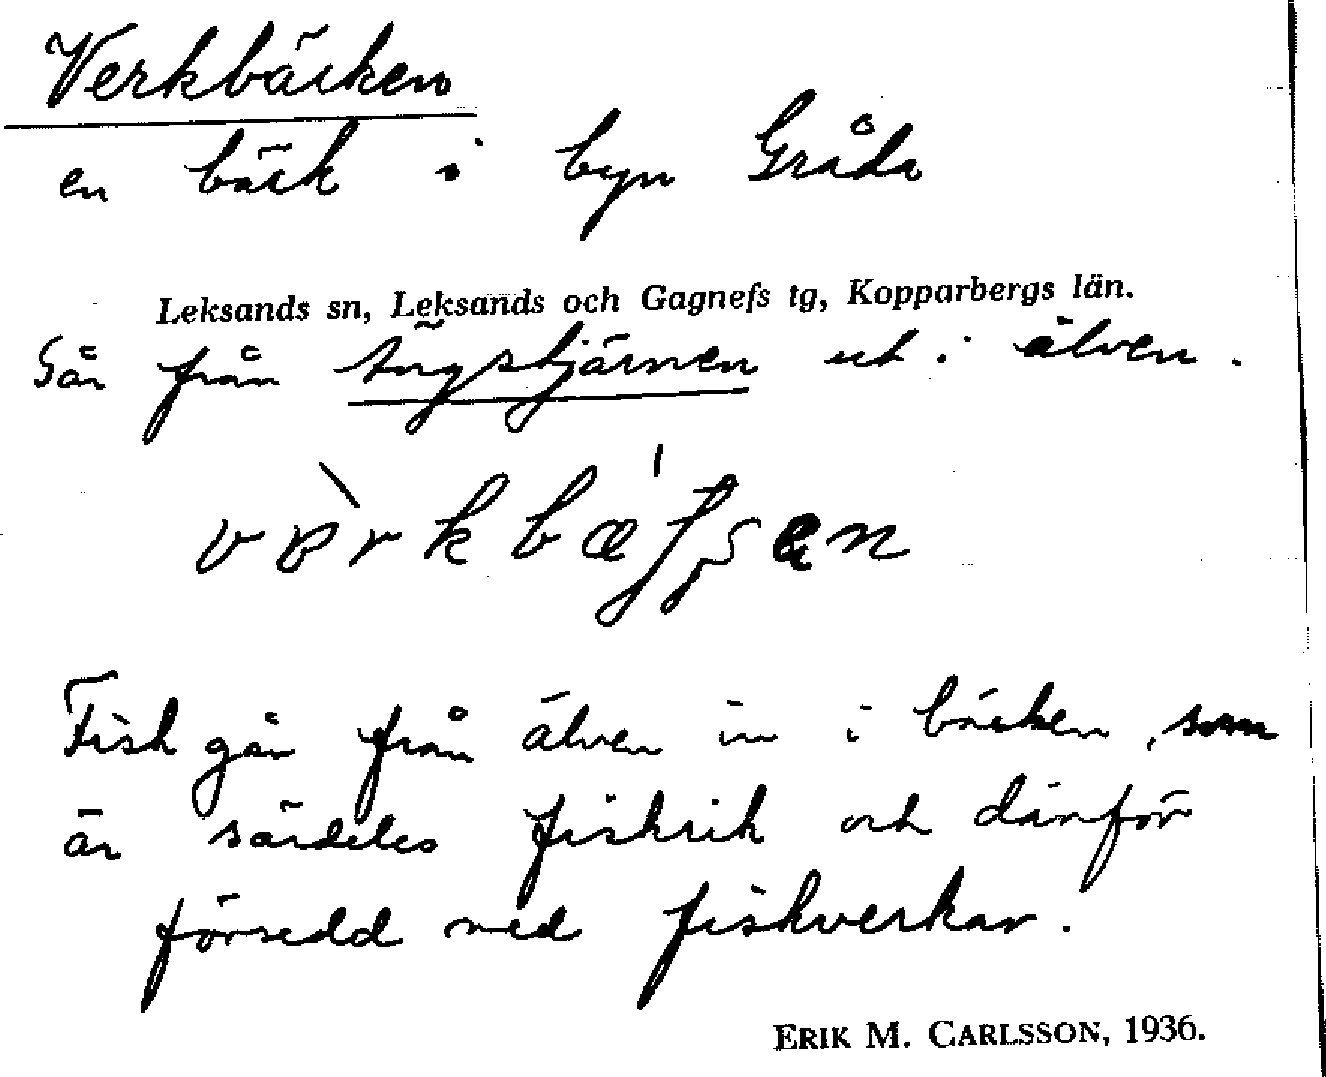 Verkbäcken
en bäck i byn Gråda
Leksands sn, Leksands och Gagnefs tg, Kopparbergs län.
Går från Ängstjärnen ut i älven.
Fisk går från älven in i bäcken, som
är särdeles fiskrik och därför
försedd med fiskverkar.
ERIK M. CARLSSON, 1936.